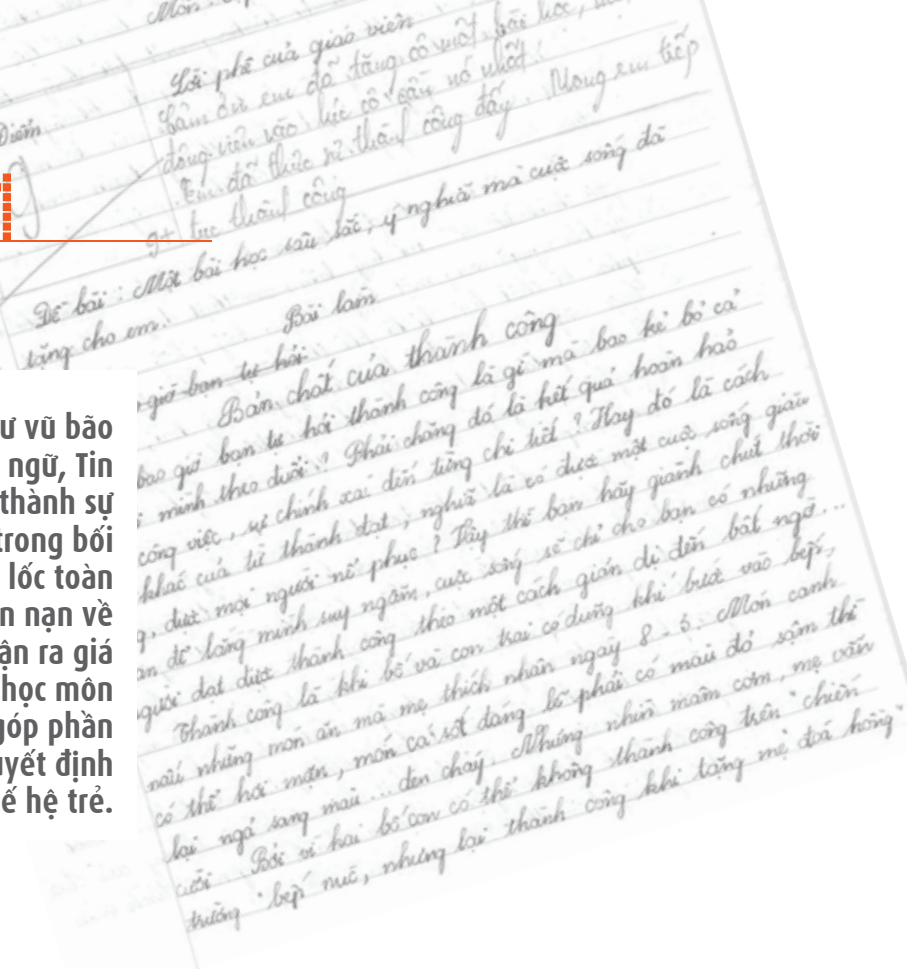 Môn:
Điểm
Lời phê của giáo viên
Cảm ơn em đã tặng cô một bài học,
động viên vào lúc cô cần nó nhất.
Em đã thức sự thành công đấy. Mong em tiếp
9+ tục thành công
9
Đề bài: Một bài học sâu sắc, ý nghĩa mà cuộc sống đã
tặng cho em.
Bài làm
giờ bạn tự hỏi
Bản chất của thành công
bao giờ bạn tự hỏi thành công là gì mà bao kẻ bỏ cả
mình theo đuổi? Phải chăng đó là kết quả hoàn hảo
công việc, sự chính xác đến từng chi tiết? Hay đó là cách
khác của từ thành đạt, nghĩa là có được một cuộc sống giàu
được mọi người nể phục? Vậy thì bạn hãy giành chút thời
để lắng mình suy ngẫm, cuộc sống sẽ chỉ cho bạn có những
người đạt được thành công theo một cách giản dị đến bất ngờ...
Thành công là khi bố và con trai có dũng khí bước vào bếp,
nấu những món ăn mà mẹ thích nhân ngày 8-3. Món canh
có thể hơi mặn, món cá sốt đáng lẽ phải có màu đỏ sậm thì
lại ngả sang màu... đen cháy. Nhưng nhìn mâm cơm, mẹ vẫn
cười. Bởi vì hai bố con có thể không thành công trên "chiến
trường" bếp núc, nhưng lại thành công khi tặng mẹ đoá hồng
ư vũ bão
ngữ, Tin
thành sự
trong bối
lốc toàn
n nạn về
ận ra giá
học môn
góp phần
uyết định
ế hệ trẻ.